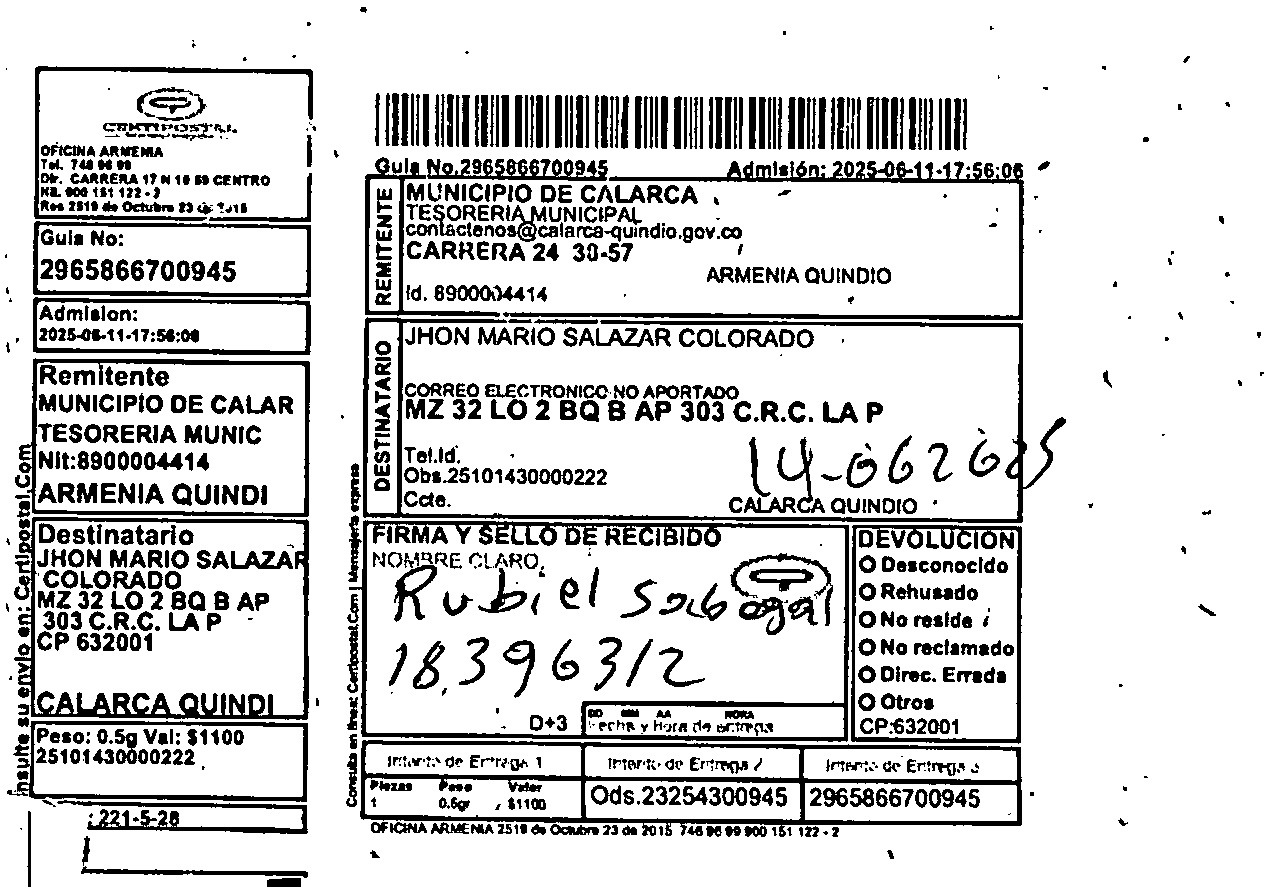 CERTIPOSTAL
OFICINA ARMENIA
Tel. 746 96 99
Dir. CARRERA 17 N 16 59 CENTRO
Nit. 900 151 122 - 2
Res 2519 de Octubre 23 de 2015
Guia No:
2965866700945
Admision:
2025-06-11-17:56:06
Remitente
MUNICIPIO DE CALAR
TESORERIA MUNIC
Nit:8900004414
ARMENIA QUINDI
Destinatario
JHON MARIO SALAZAR
COLORADO
MZ 32 LO 2 BQ B AP
303 C.R.C. LA P
CP 632001
CALARCA QUINDI
Peso: 0.5g Val: $1100
25101430000222
: 221-5-28
su envio en: Certipostal.Com
Guia No.2965866700945 Admisión: 2025-06-11-17:56:06
REMITENTE
MUNICIPIO DE CALARCA
TESORERIA MUNICIPAL
contactenos@calarca-quindio.gov.co
CARRERA 24 38-57
ARMENIA QUINDIO
Id. 8900004414
DESTINATARIO
JHON MARIO SALAZAR COLORADO
CORREO ELECTRONICO NO APORTADO
MZ 32 LO 2 BQ B AP 303 C.R.C. LA P
Tel.Id.
Obs.25101430000222
Ccte.
14-062025
CALARCA QUINDIO
Consulta en linea: Certipostal.Com | Mensajeria expresa
FIRMA Y SELLO DE RECIBIDO
NOMBRE CLARO,
Rubiel Sabogal
18.396312
D+3
DD MM AA HORA
Fecha y Hora de entrega
DEVOLUCION
Desconocido
Rehusado
No reside
No reclamado
Direc. Errada
Otros
CP:632001
Intento de Entrega 1 Intento de Entrega 2 Intento de Entrega 3
Piezas Peso Valor
1 0.5gr $1100
Ods.23254300945 2965866700945
OFICINA ARMENIA 2519 de Octubre 23 de 2015 746 96 99 900 151 122 - 2